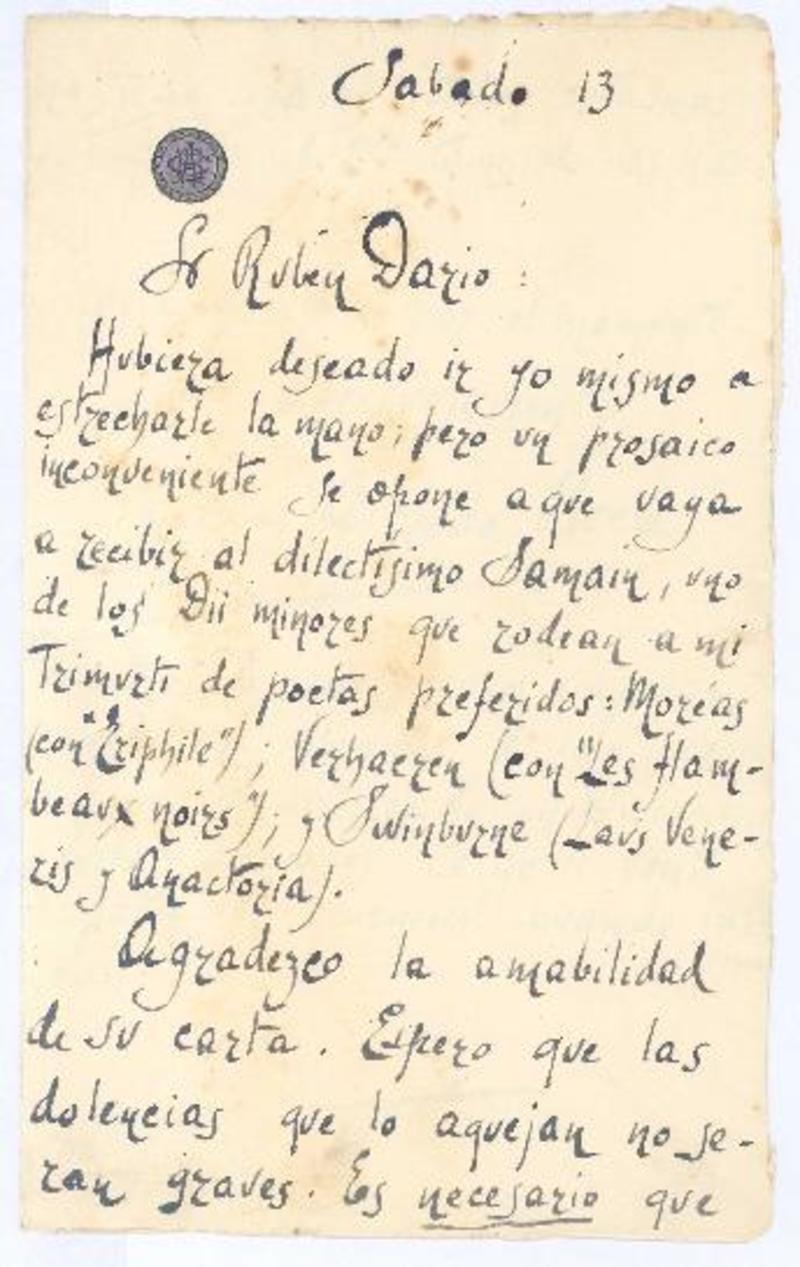 Sabado 13
Sr Rubén Dario:
Hubiera deseado ir yo mismo a
estrecharle la mano; pero un prosaico
inconveniente se opone a que vaya
a recibir al dilectisimo Samain, uno
de los Dii minores que rodean a mi
Trimurti de poetas preferidos: Moréas
(con "Eriphile"); Verhaeren (con "Les flam-
beaux noirs"); y Swinburne (Laus Vene-
ris y Anactoria).
Agradezco la amabilidad
de su carta. Espero que las
dolencias que lo aquejan no se-
ran graves. Es necesario que